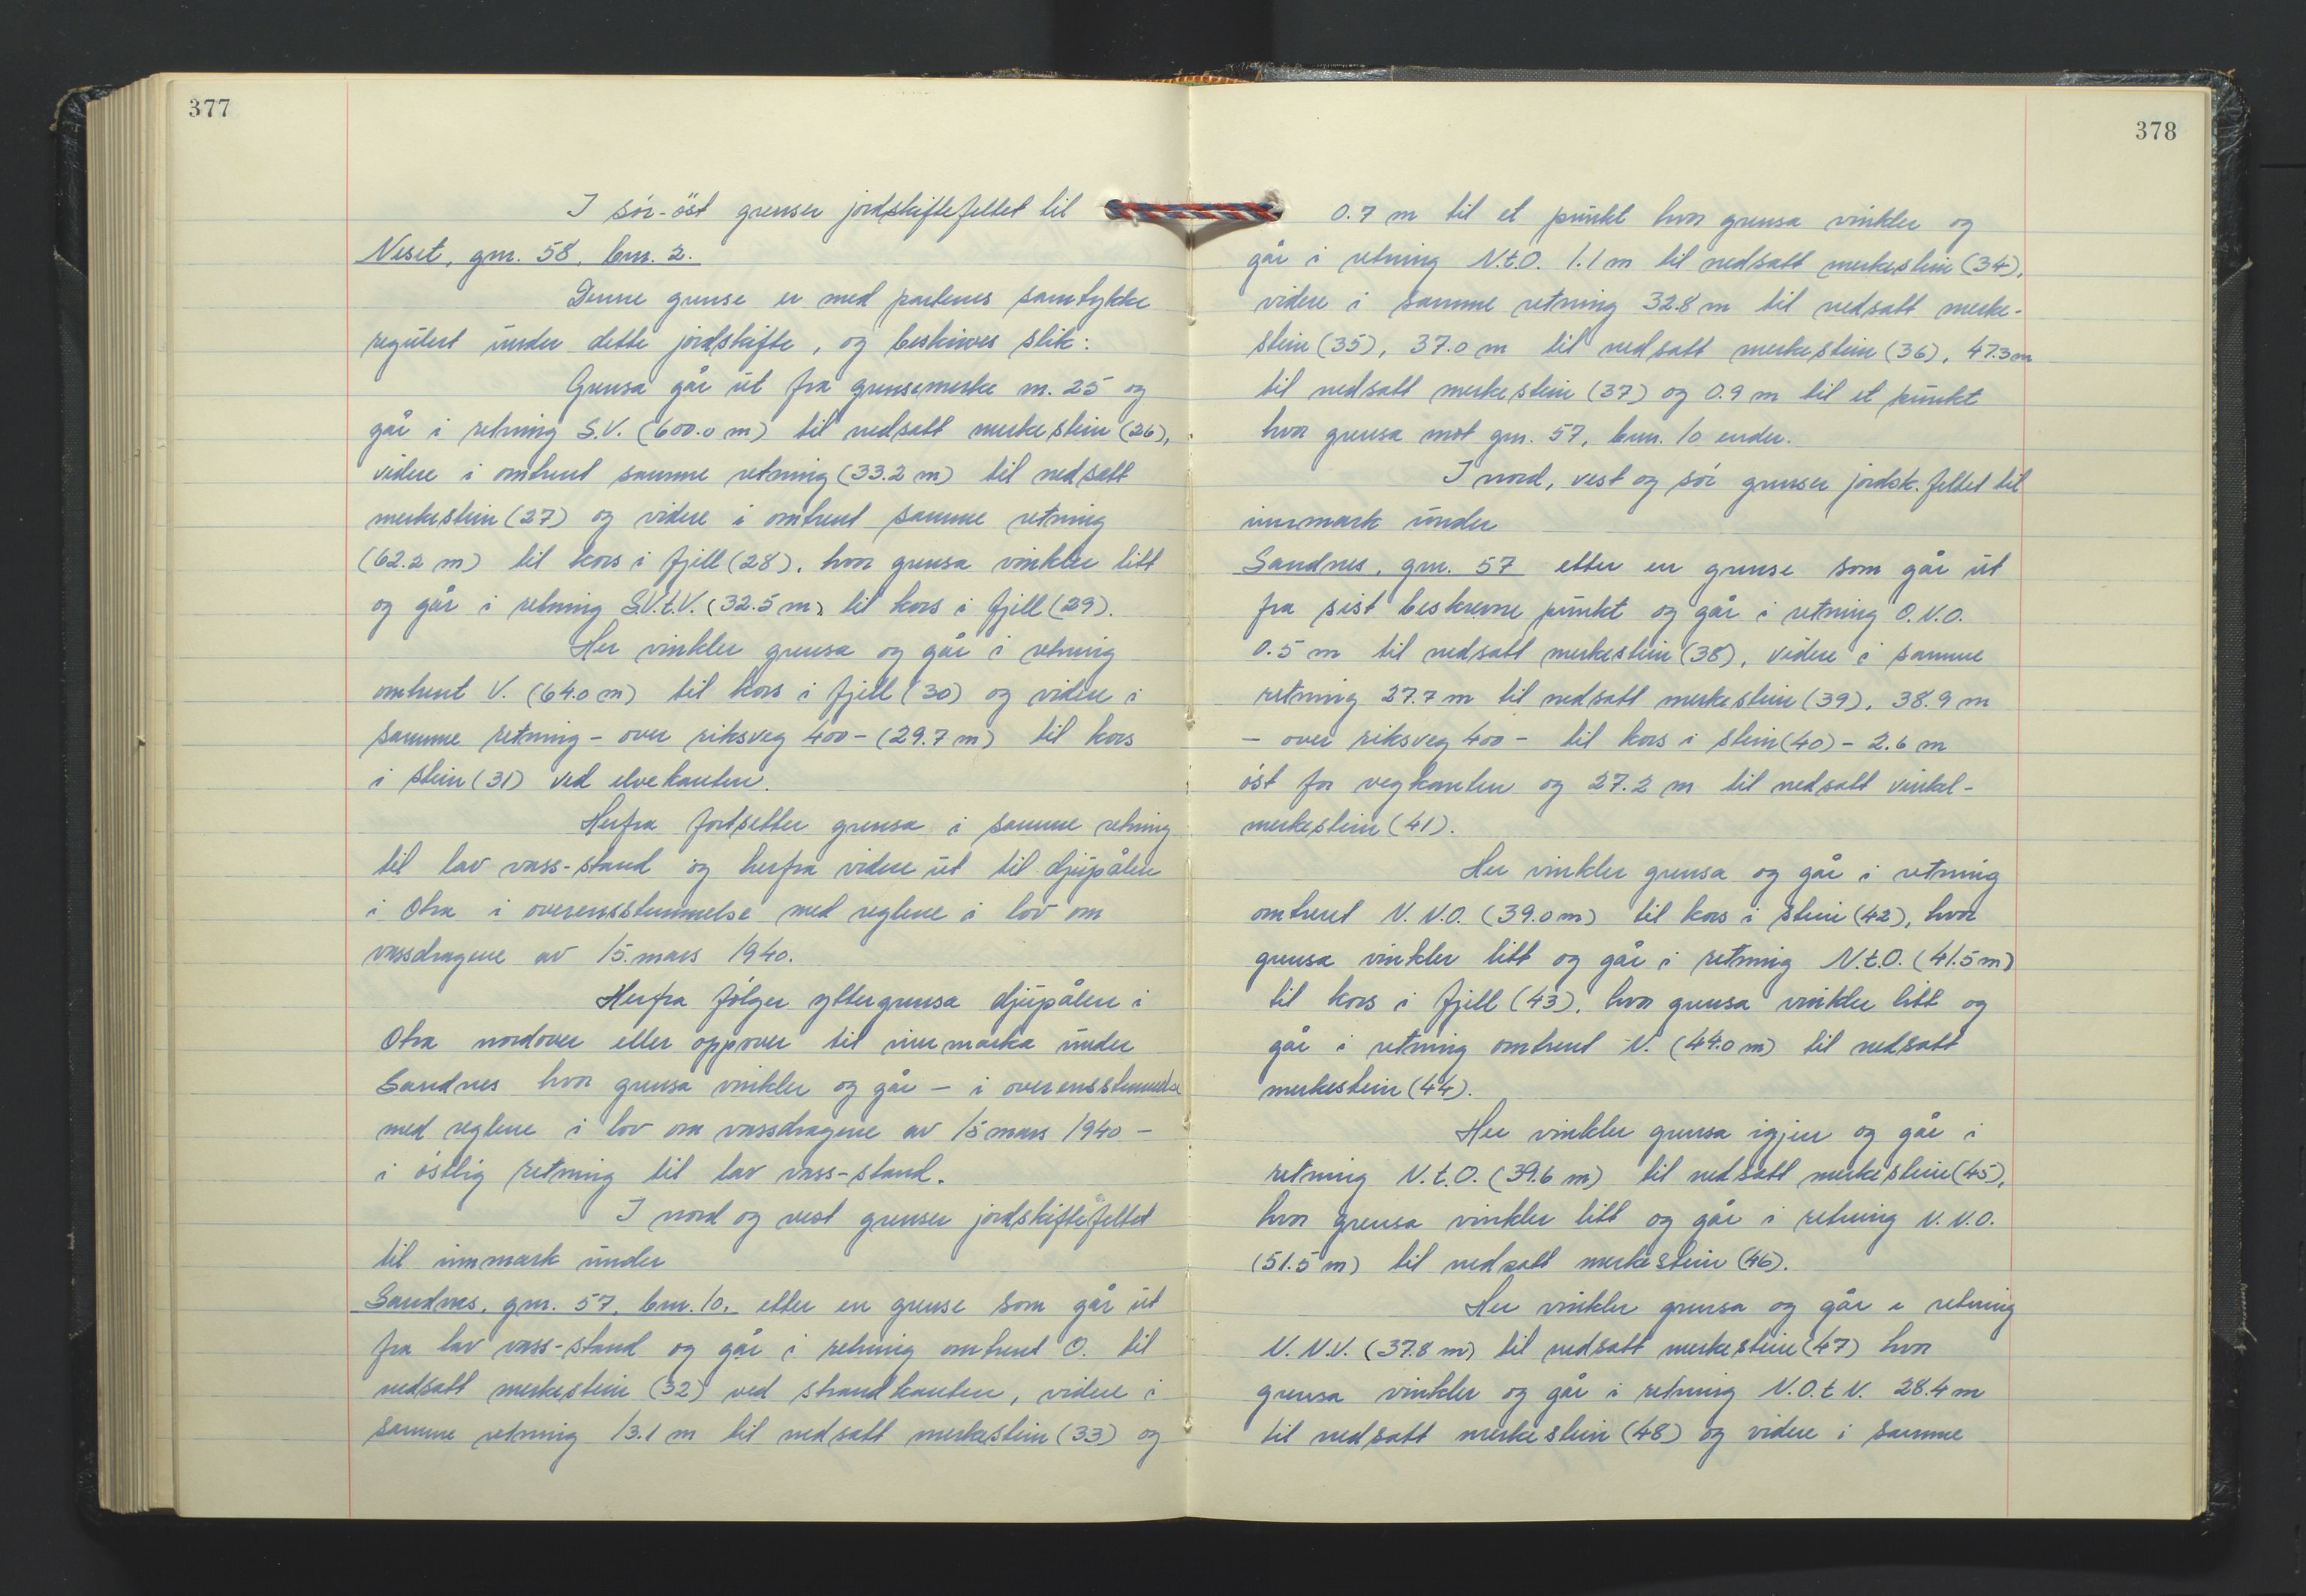 377
I sör-öst grenser jordskiftefeltet til
Neset, gnr. 58, bnr. 2.
Denne grense er med partenes samtykke
regulert under dette jordskifte, og beskrives slik:
Grensa går ut fra grensemerke nr. 25 og
går i retning S.V. (600.0 m) til nedsatt merkestein (26),
videre i omtrent samme retning (33.2 m) til nedsatt
merkestein (27) og videre i omtrent samme retning
(62.2 m) til kors i fjell (28), hvor grensa vinkler litt
og går i retning S.V.t.V. (32.5 m) til kors i fjell (29).
Her vinkler grensa og går i retning
omtrent V. (64.0 m) til kors i fjell (30) og videre i
samme retning - over riksveg 400 - (29.7 m) til kors
i stein (31) ved elvekanten.
Herfra fortsetter grensa i samme retning
til lav vass-stand og herfra videre ut til djupålen
i Otra i overensstemmelse med reglene i lov om
vassdragene av 15. mars 1940.
Herfra følger yttergrensa djupålen i
Otra nordover eller oppover til innmarka under
Sandnes hvor grensa vinkler og går - i overensstemmelse
med reglene i lov om vassdragene av 15 mars 1940 -
i östlig retning til lav vass-stand.
I nord og vest grenser jordskiftefeltet
til innmark under
Sandnes, gnr. 57, bnr. 10, etter en grense som går ut
fra lav vass-stand og går i retning omtrent O. til
nedsatt merkestein (32) ved strandkanten, videre i
samme retning 13.1 m til nedsatt merkestein (33) og
378
0.7 m til et punkt hvor grensa vinkler og
går i retning N.t.O. 1.1 m til nedsatt merkestein (34),
videre i samme retning 32.8 m til nedsatt merke-
stein (35), 37.0 m til nedsatt merkestein (36), 47.3 m
til nedsatt merkestein (37) og 0.9 m til et punkt
hvor grensa mot gnr. 57, bnr. 10 ender.
I nord, vest og sör grenser jordsk.feltet til
innmark under
Sandnes, gnr. 57 etter en grense som går ut
fra sist beskrevne punkt og går i retning O.N.O.
0.5 m til nedsatt merkestein (38), videre i samme
retning 27.7 m til nedsatt merkestein (39), 38.9 m
- over riksveg 400 - til kors i stein (40) - 2.6 m
öst for vegkanten og 27.2 m til nedsatt vinkel-
merkestein (41).
Her vinkler grensa og går i retning
omtrent N.N.O. (39.0 m) til kors i stein (42), hvor
grensa vinkler litt og går i retning N.t.O. (41.5 m)
til kors i fjell (43), hvor grensa vinkler litt og
går i retning omtrent N. (44.0 m) til nedsatt
merkestein (44).
Her vinkler grensa igjen og går i
retning N.t.O. (39.6 m) til nedsatt merkestein (45),
hvor grensa vinkler litt og går i retning N.N.O.
(51.5 m) til nedsatt merkestein (46).
Her vinkler grensa og går i retning
N.N.V. (37.8 m) til nedsatt merkestein (47) hvor
grensa vinkler og går i retning N.O.t.N. 28.4 m
til nedsatt merkestein (48) og videre i samme